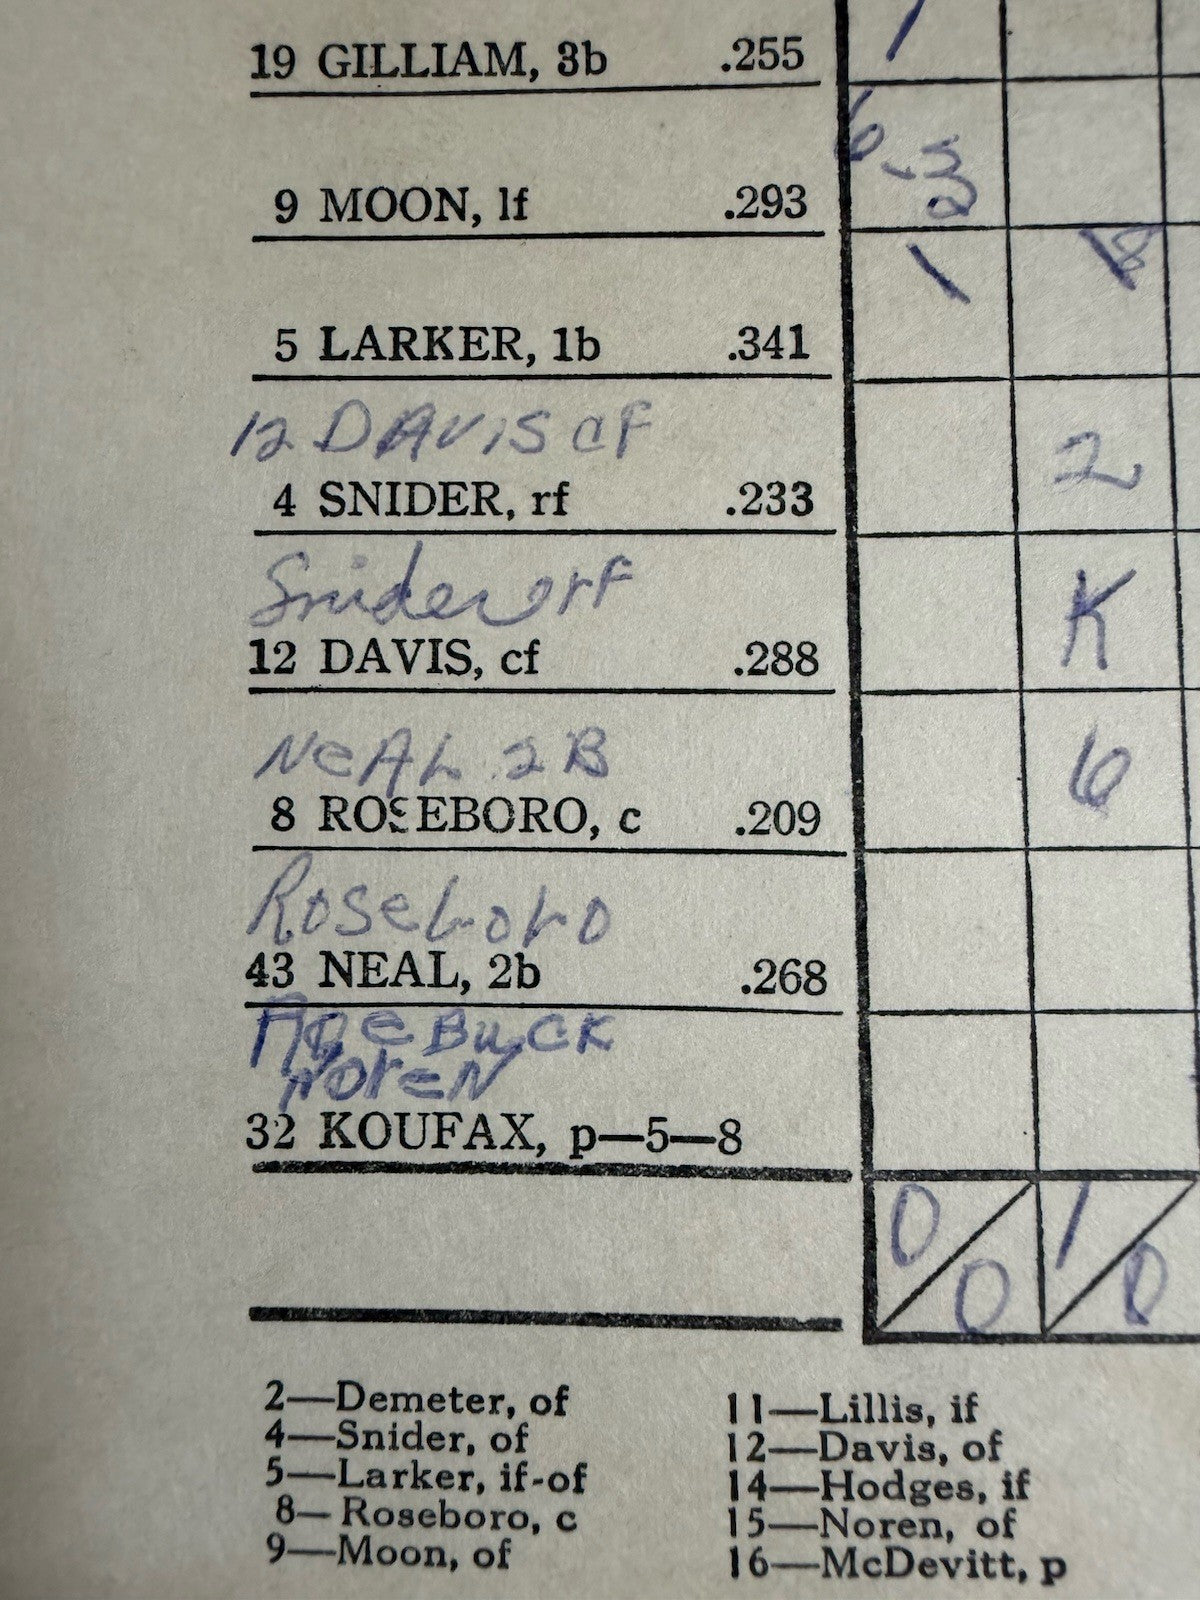 19 GILLIAM, 3b .255 1
6-3
9 MOON, lf .293 2
1 8
5 LARKER, 1b .341
12 DAVIS CF
4 SNIDER, rf .233 2
Snider rF
12 DAVIS, cf .288 K
NeAL 2B
8 ROSEBORO, c .209 6
Roseboro
43 NEAL, 2b .268
ROEBUCK
NoreN
32 KOUFAX, p—5—8
0 0 1 0
2—Demeter, of
4—Snider, of
5—Larker, if-of
8—Roseboro, c
9—Moon, of
11—Lillis, if
12—Davis, of
14—Hodges, if
15—Noren, of
16—McDevitt, p